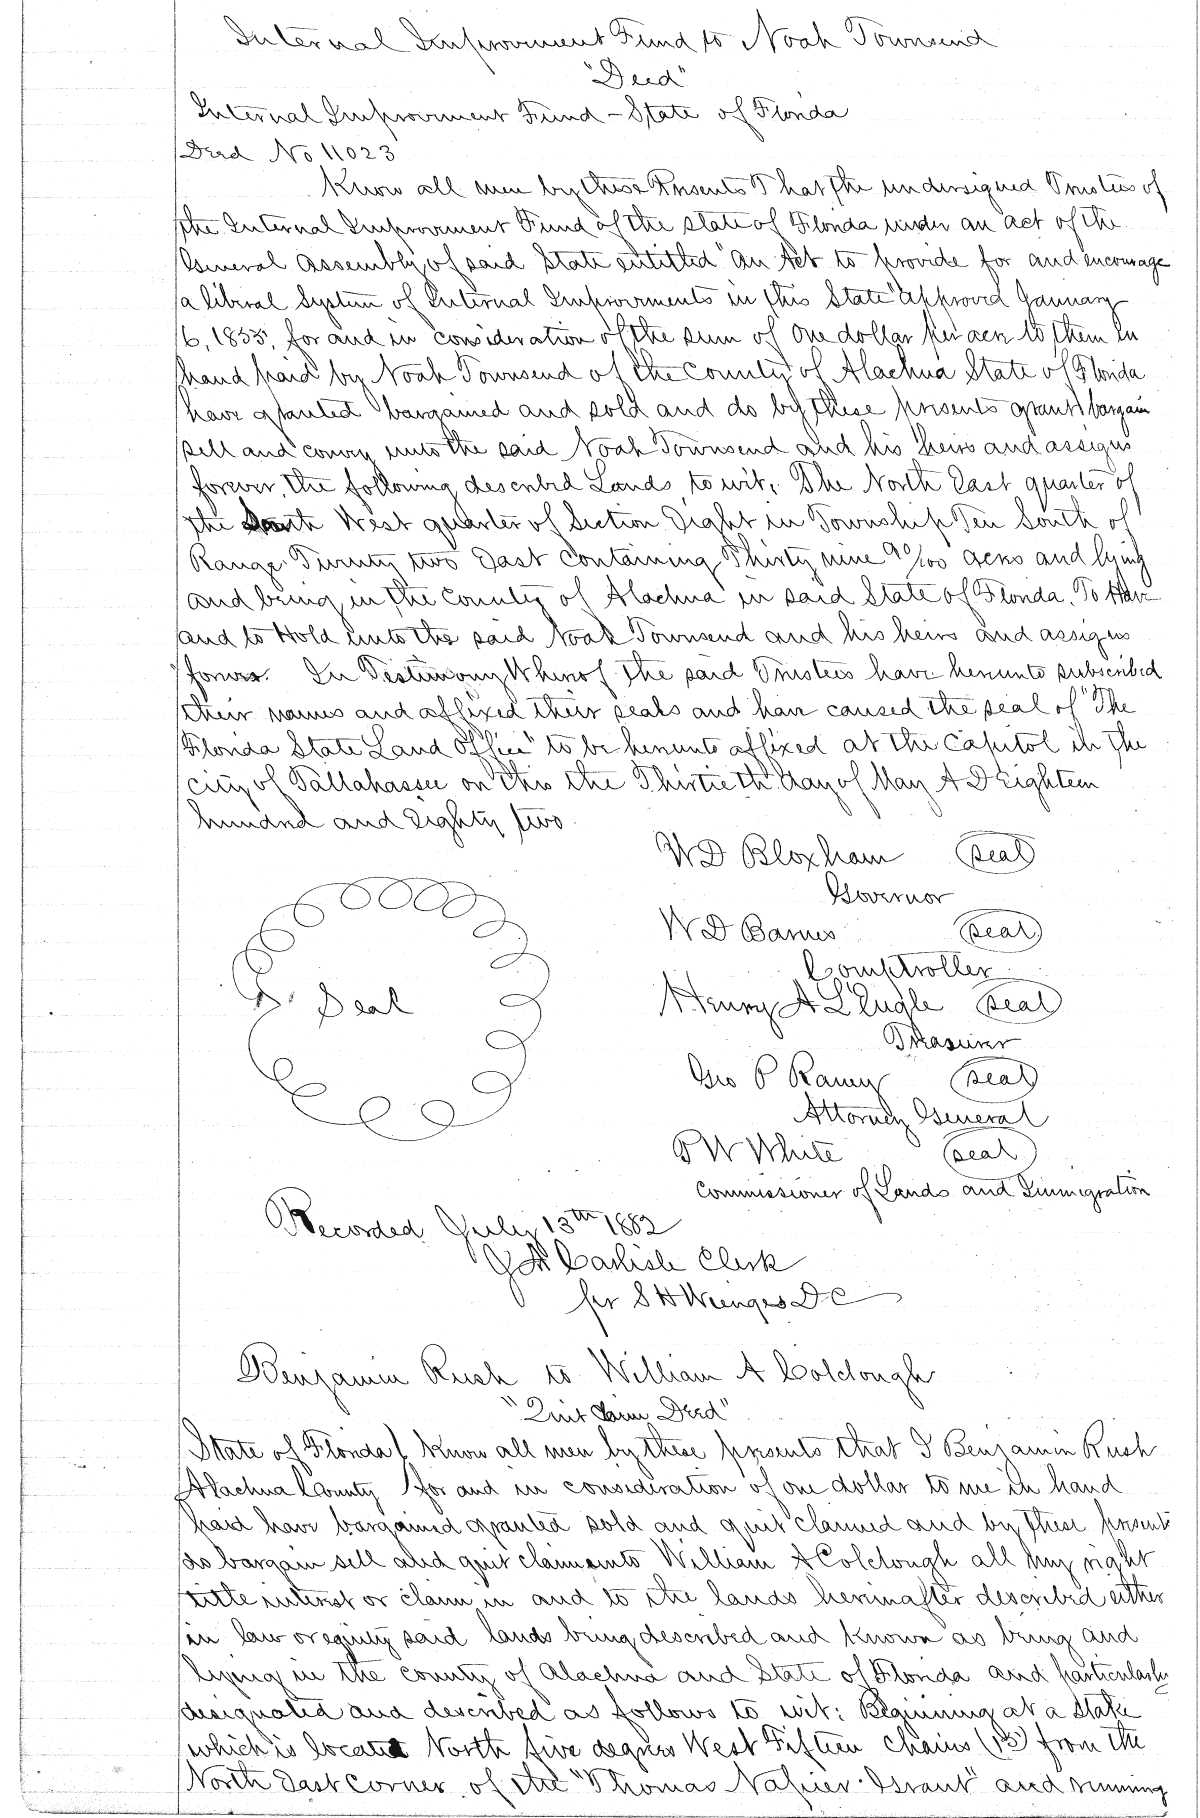 Internal Improvement Fund to Noah Townsend
"Deed"
Internal Improvement Fund - State of Florida
Deed No 11023
Know all men by these Presents That the undersigned Trustees of
the Internal Improvement Fund of the state of Florida under an act of the
General Assembly of said State entitled "An Act to provide for and encourage
a liberal System of Internal Improvements in this State" approved January
6, 1855, for and in consideration of the sum of One dollar per acre to them in
hand paid by Noah Townsend of the County of Alachua State of Florida
have granted bargained and sold and do by these presents grant bargain
sell and convey unto the said Noah Townsend and his heirs and assigns
forever, the following described Lands to wit, The North East quarter of
the South West quarter of Section Eight in Township Ten South of
Range Twenty two East containing Thirty nine 90/100 acres and lying
and being in the County of Alachua in said State of Florida. To Have
and to Hold unto the said Noah Townsend and his heirs and assigns
forever. In Testimony Whereof the said Trustees have hereunto subscribed
their names and affixed their seals and have caused the seal of "The
Florida State Land Office" to be hereunto affixed at the Capitol in the
city of Tallahassee on this the Thirtieth day of May A D Eighteen
hundred and Eighty two
W D Bloxham seal
Governor
W D Barnes seal
Comptroller
Seal
Henry A L'Engle seal
Treasurer
Geo P Raney seal
Attorney General
P W White seal
Commissioner of Lands and Immigration
Recorded July 13th 1882
J A Carlisle Clerk
per S H Wienges D C
Benjamin Rush to William A Colclough
"Quit Claim Deed"
State of Florida } Know all men by these presents that I Benjamin Rush
Alachua County } for and in consideration of one dollar to me in hand
paid have bargained granted sold and quit claimed and by these present
do bargain sell and quit claim unto William A Colclough all my right
title interest or claim in and to the lands hereinafter described either
in law or equity said lands being described and known as being and
lying in the county of Alachua and State of Florida and particularly
designated and described as follows to wit: Beginning at a stake
which is located North five degrees West Fifteen chains (15) from the
North East corner of the "Thomas Napier Grant" and running